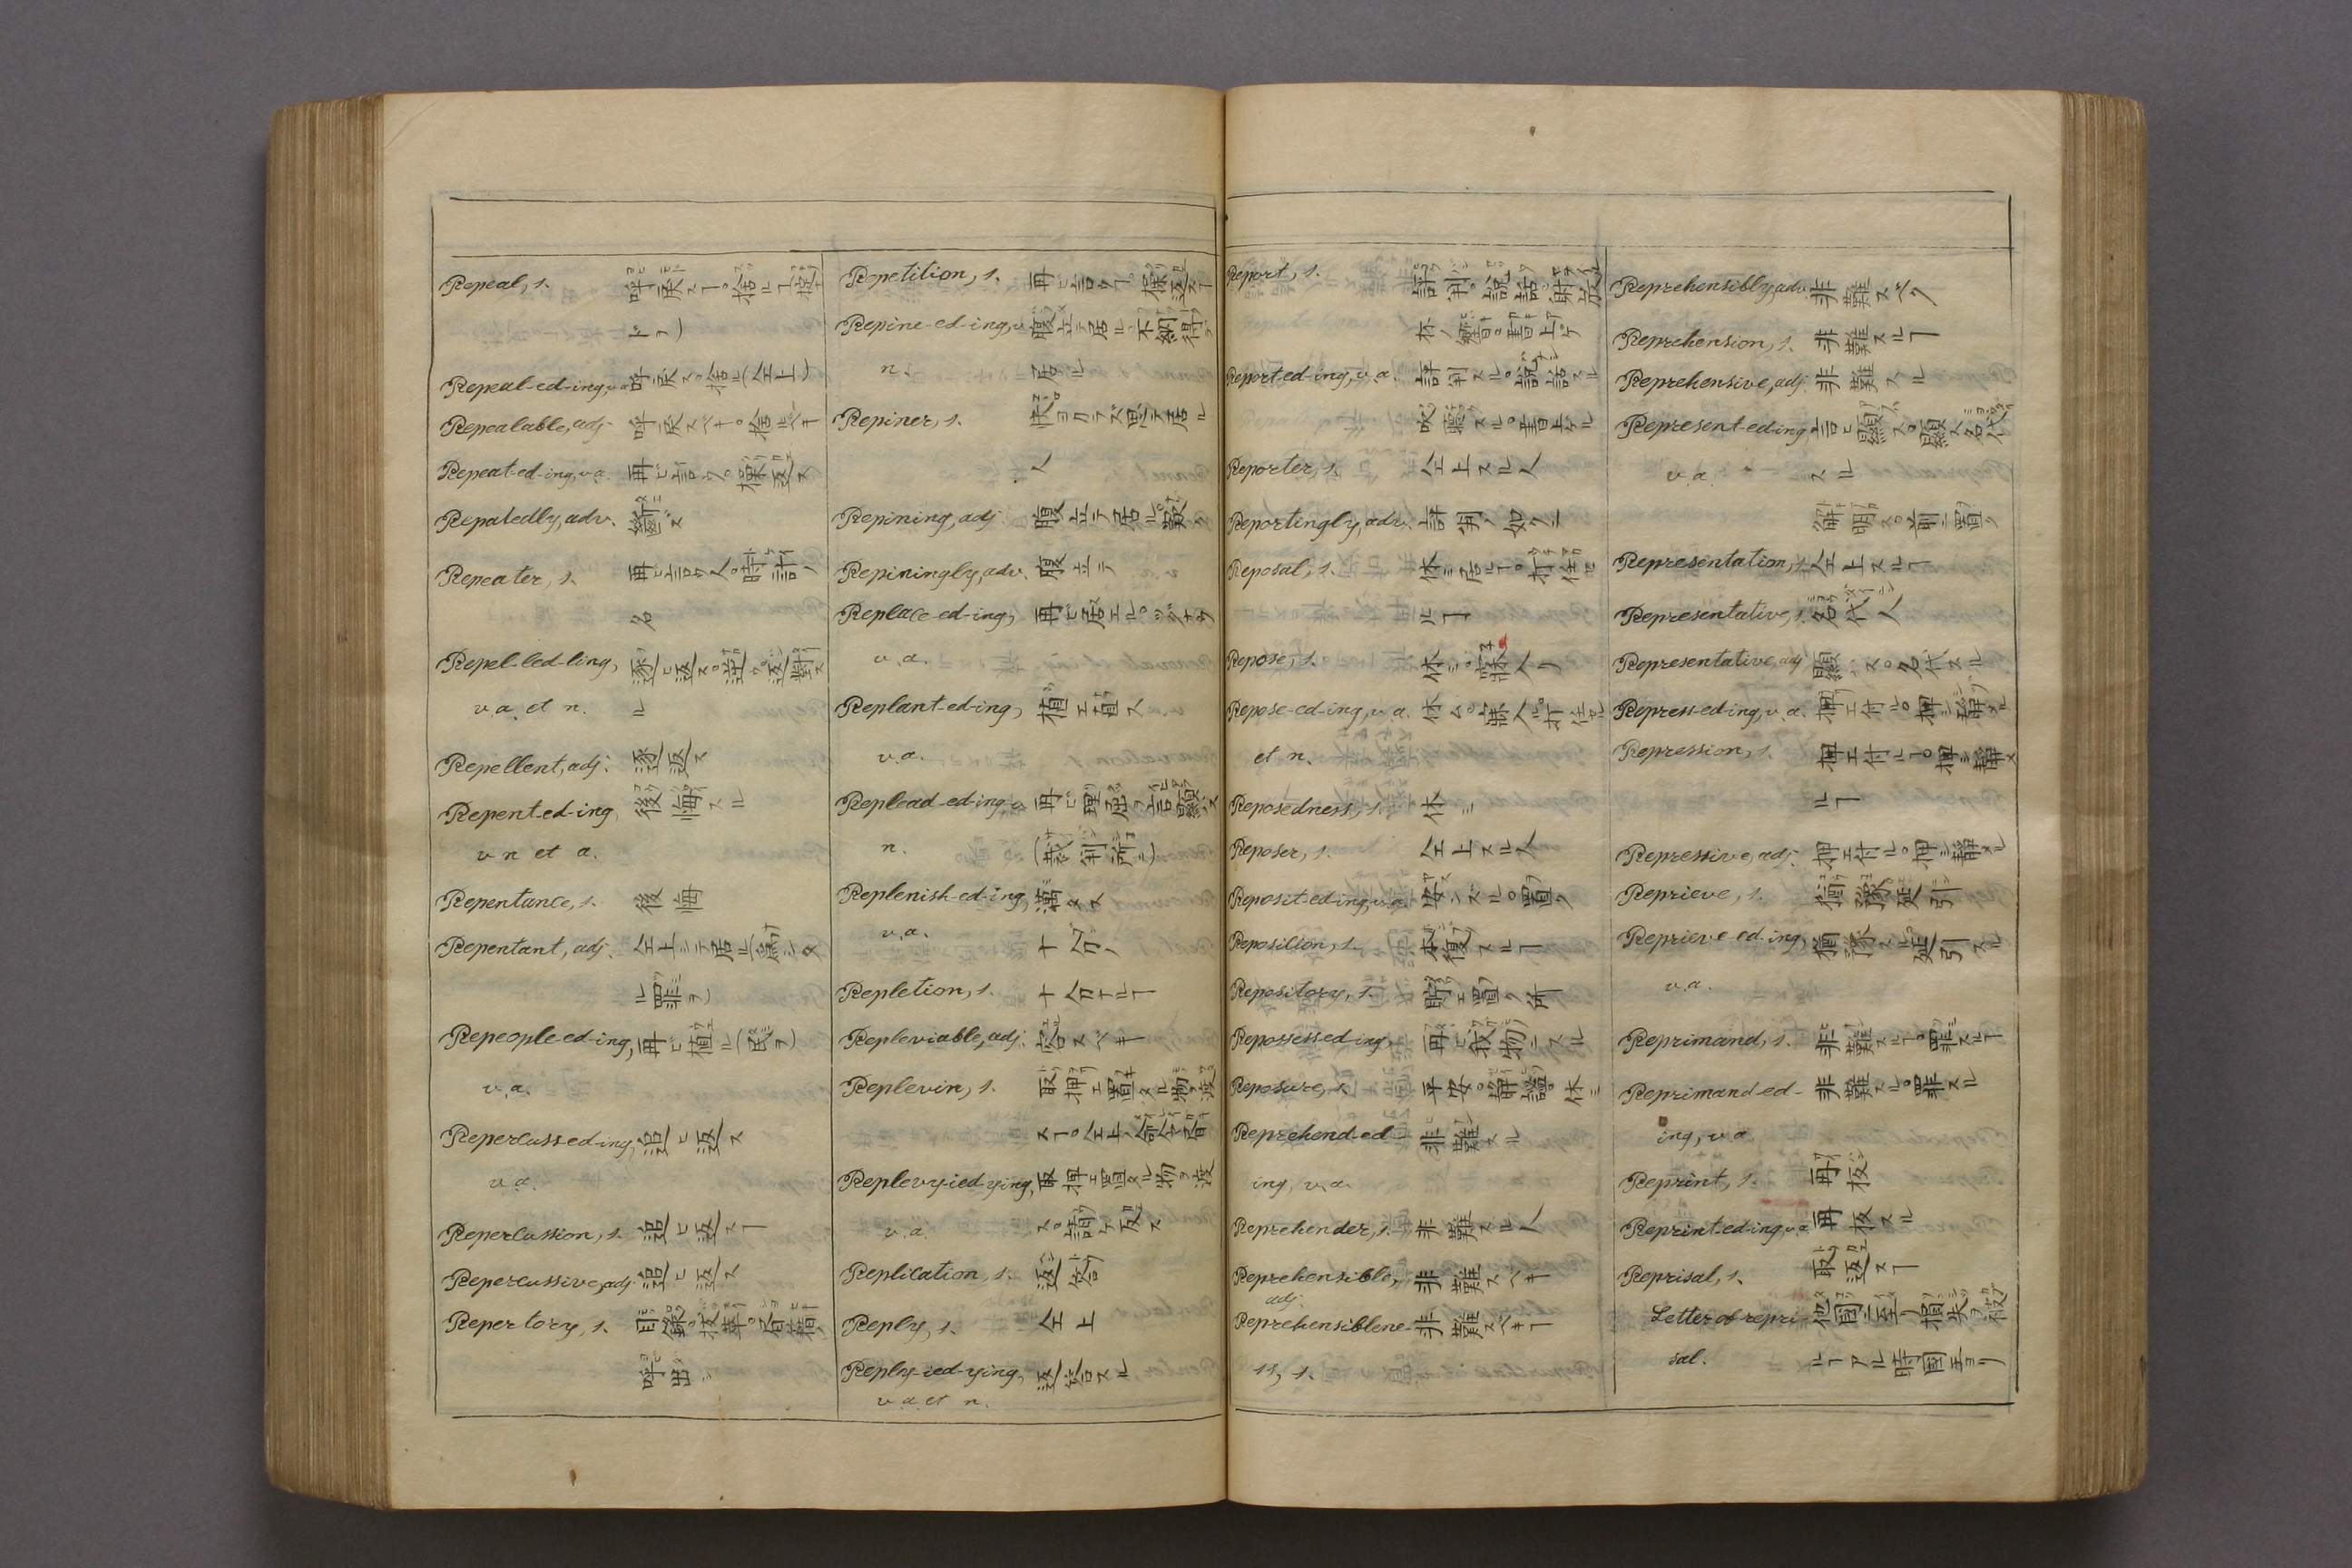 Repeal, s. 呼戻スヿ。捨ルヿ(掟ナ
ドヲ)
Repeal-ed-ing, v.a. 呼戻ス。捨ル(仝上)
Repealable, adj. 呼戻スベキ。捨ルベキ
Repeat-ed-ing, v.a. 再ビ言フ。操返ス
Repatedly, adv.
Repeater, s. 再ビ言フ人。時計ノ
名
Repel-led-ling, 逐ヒ返ス。
v.a. et n. ル
Repellent, adj. 逐返ス
Repent-ed-ing, 後悔スル
v n et a.
Repentance, s. 後悔
Repentant, adj. 仝上シテ居ル
ル罪ヲ)
Repeople-ed-ing, 再ビ植ル(民ヲ)
v.a.
Repercuss-ed-ing, 追ヒ返ス
v.a.
Repercussion, s. 追ヒ返スヿ
Repercussive, adj. 追ヒ返ス
Repertory, s. 目録。抜萃。
呼出シ
Repetition, s. 再ビ言フヿ。操返スヿ
Repine-ed-ing, v 腹立テ居ル。不納得デ
n. 居ル
Repiner, s. 快ヨカラズ思テ居ル
人
Repining, adj. 腹立テ居ル。歎ク
Repiningly, adv. 腹立テ
Replace-ed-ing, 再ビ居エル。ツグナウ
v.a.
Replant-ed-ing, 植エ直ス
v.a.
Replead-ed-ing, v 再ビ理屈ヲ言顕ス
n. (裁判所ニ)
Replenish-ed-ing, 満タス
v.a. 十分ノ
Repletion, s. 十分ナルヿ
Repleviable, adj. 容スベキ
Replevin, s. 取押エ置タル物ヲ渡
スヿ。仝上ノ命令書
Replevy-ied-ying, 取押エ置タル物ヲ渡
v.a. ス。請ケ戻ス
Replication, s. 返答
Reply, s. 仝上
Reply-ied-ying, 返答スル
v.a. et n.
Report, s. 評判。説話。
書上ゲ
Report-ed-ing, v.a. 評判スル。説話スル
吹聴スル。書上ゲル
Reporter, s. 仝上スル人
Reportingly, adv. 評判ノ如クニ
Reposal, s. 休ミ居ルヿ。打任セ
ルヿ
Repose, s. 休ミ。寐入リ
Repose-ed-ing, v.a. 休ム。寐入ル。打任セル
et n.
Reposedness, s. 休ミ
Reposer, s. 仝上スル人
Reposit-ed-ing, v.a. 安ンズル。置ク
Reposition, s. 本復スルヿ
Repository, s. 貯エ置ク所
Repossess-ed-ing, 再ビ我物ニスル
Reposure, s. 平安。静謐。休ミ
Reprehend-ed- 非難スル
ing, v.a.
Reprehender, s. 非難スル人
Reprehensible, 非難スベキ
adj.
Reprehensiblene- 非難スベキヿ
ss, s.
Reprehensibly, adv. 非難スベク
Reprehension, s. 非難スルヿ
Reprehensive, adj. 非難スル
Represent-ed-ing, 言ヒ顕ス。顕ス。名代
v.a. スル
解明ス。前ニ置ク
Representation, s. 仝上スルヿ
Representative, s. 名代人
Representative, adj. 顕ハス。名代スル
Repress-ed-ing, v.a. 押エ付ル。押シ静メル
Repression, s. 押エ付ルヿ。押シ静メ
ルヿ
Repressive, adj. 押エ付ル。押シ静メル
Reprieve, s. 猶豫。延引
Reprieve-ed-ing, 猶豫スル。延引スル
v.a.
Reprimand, s. 非難スルヿ。罪スルヿ
Reprimand-ed- 非難スル。罪スル
ing, v.a.
Reprint, s. 再板
Reprint-ed-ing, v.a. 再板スル
Reprisal, s. 取返スヿ
Letter of repri- 他国ニ至リ損失ヲ
sal. ルヿアル時国王ヨリ